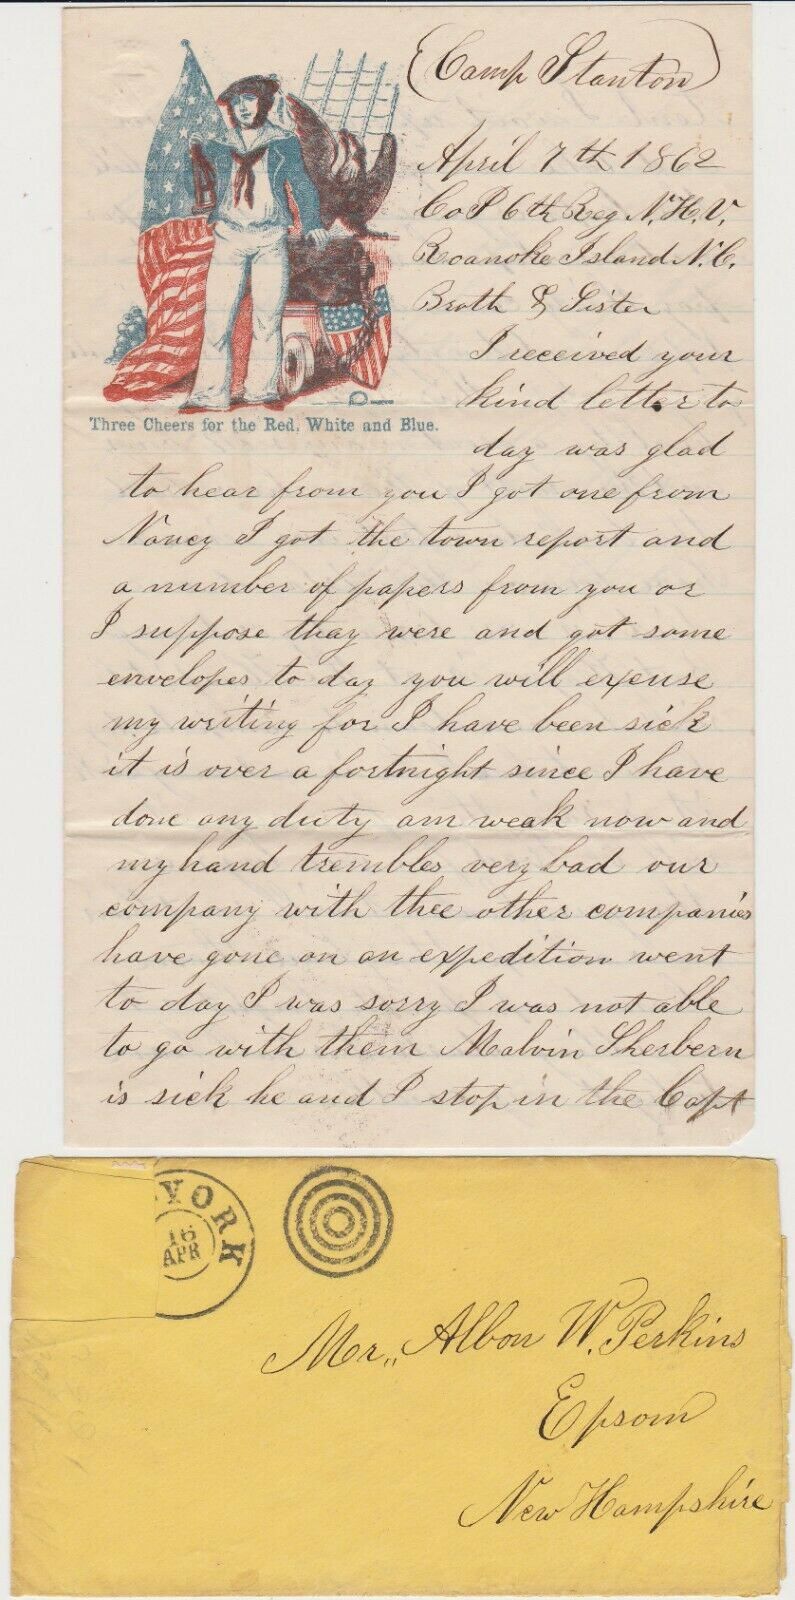 (Camp Stanton)
April 7th 1862
Co I 6th Reg N.H.V,
Roanoke Island N.C.
Broth & Sister
Three Cheers for the Red, White and Blue.
I received your
kind letter to
day was glad
to hear from you I got one from
Nancy I got the town report and
a number of papers from you or
I suppose thay were and got some
envelopes to day you will excuse
my writing for I have been sick
it is over a fortnight since I have
done any duty am weak now and
my hand trembles very bad our
company with thee other companies
have gone on an expedition went
to day I was sorry I was not able
to go with them Malvin Sherbern
is sick he and I stop in the Capt
YORK
16
APR
Mr,, Albon W. Perkins
Epsom
New Hampshire